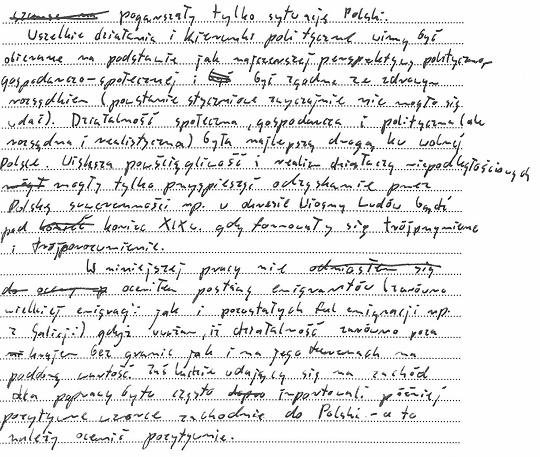 pogarszały tylko sytuację Polski.
Wszelkie działania i kierunki polityczne winny być
obierane na podstawie jak najszerszej perspektywy polityczno,
gospodarczo-społecznej i być zgodne ze zdrowym
rozsądkiem (powstanie styczniowe zwyczajnie nie mogło się
udać). Działalność społeczna, gospodarcza i polityczna (ale
rozsądna i realistyczna) była najlepszą drogą ku wolnej
Polsce. Większa powściągliwość i realizm działaczy niepodległościowych
mogły tylko przyspieszyć odzyskanie przez
Polskę suwerenności np. w okresie Wiosny Ludów bądź
pod koniec XIXw. gdy formowały się trójprzymierze
i trójporozumienie.
W niniejszej pracy nie odniosłem się
do oceny oceniłem postawę emigrantów (zarówno
wielkiej emigracji jak i pozostałych fal emigracji np.
z Galicji) gdyż uważam, iż działalność zarówno poza
krajem bez granic jak i na jego terenach ma
podobną wartość zaś ludzie udający się na zachód
dla poprawy bytu często importowali później
pozytywne wzorce zachodnie do Polski - a to
należy ocenić pozytywnie.